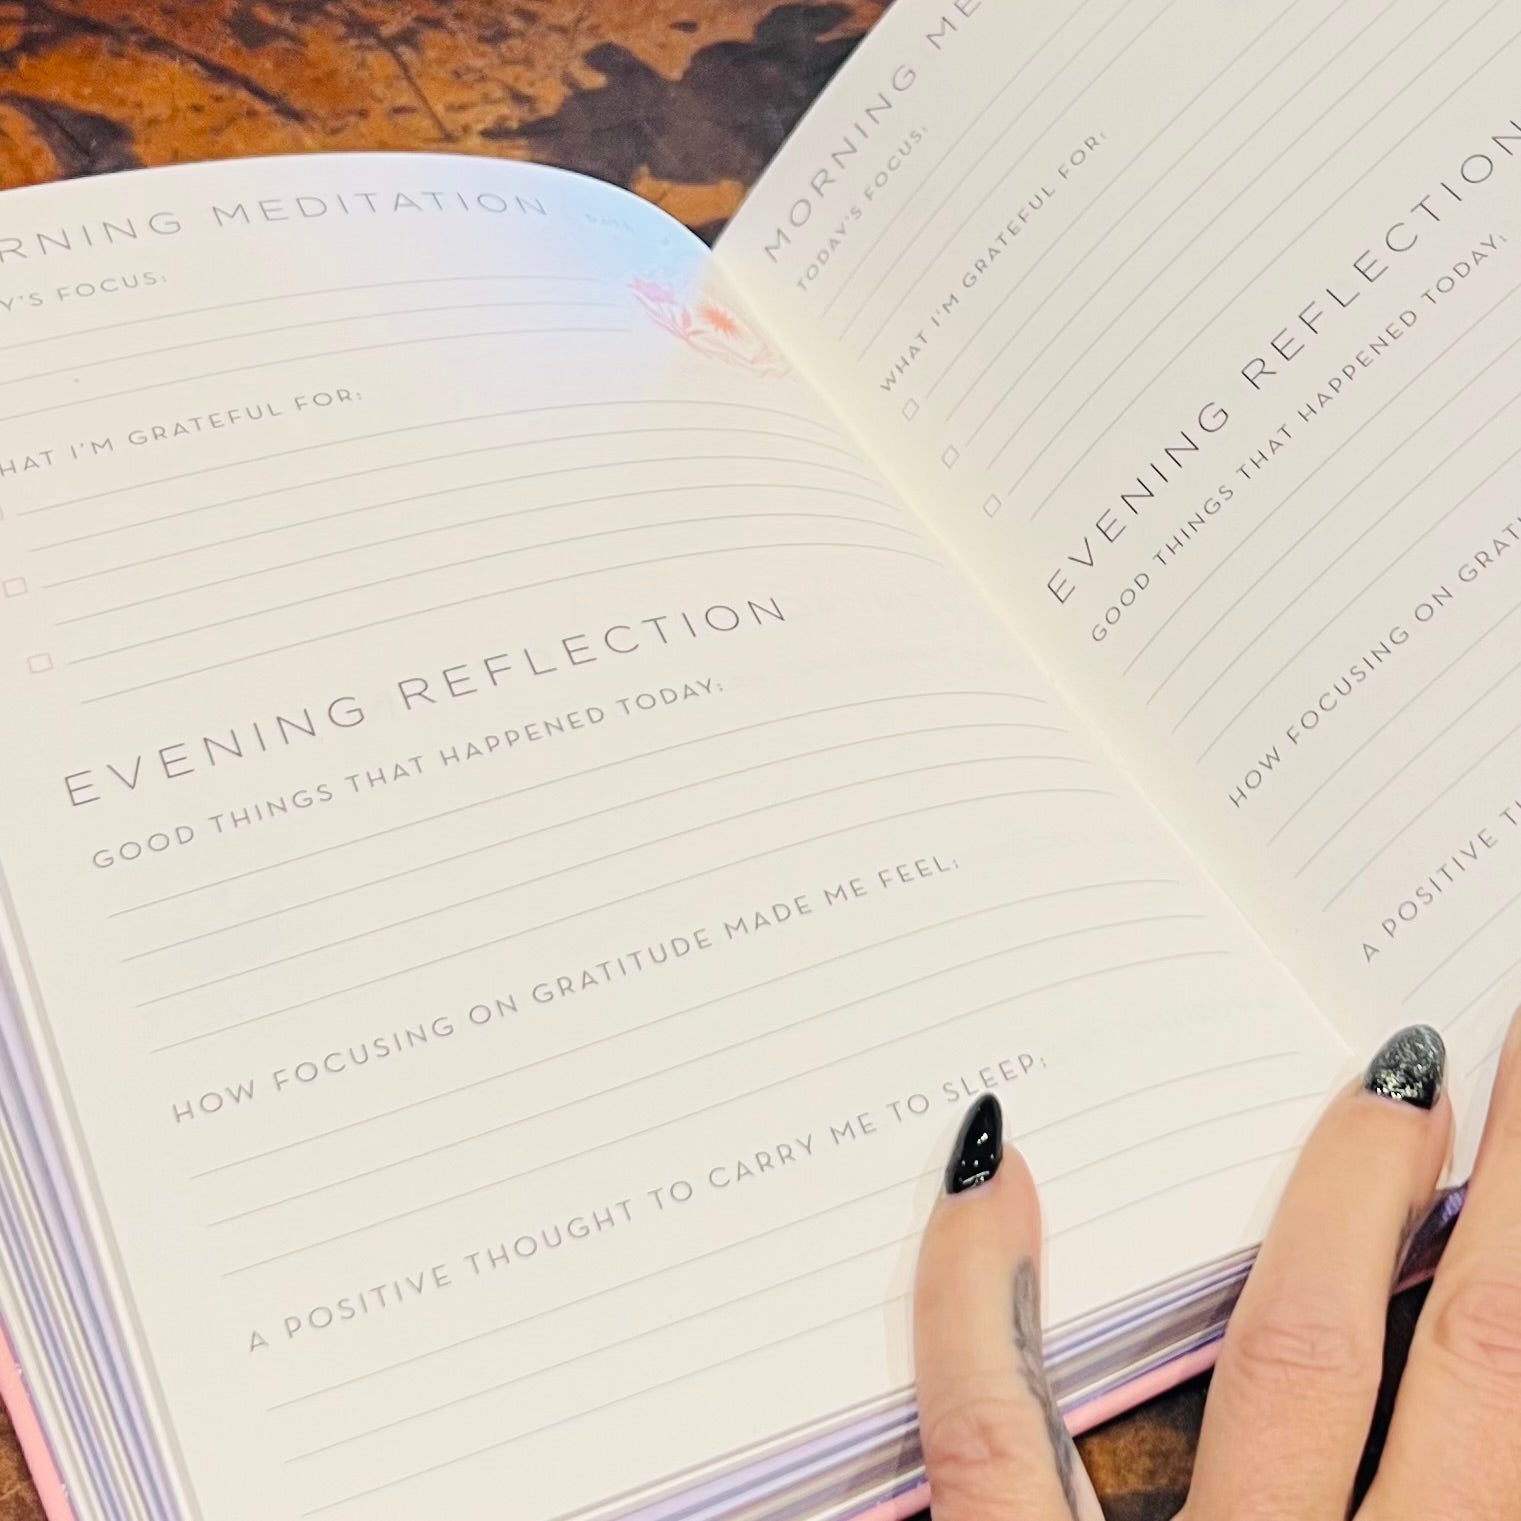 RNING MEDITATION
Y'S FOCUS:
HAT I'M GRATEFUL FOR:
EVENING REFLECTION
GOOD THINGS THAT HAPPENED TODAY:
HOW FOCUSING ON GRATITUDE MADE ME FEEL:
A POSITIVE THOUGHT TO CARRY ME TO SLEEP:
MORNING ME
TODAY'S FOCUS:
WHAT I'M GRATEFUL FOR:
EVENING REFLECTION
GOOD THINGS THAT HAPPENED TODAY:
HOW FOCUSING ON GRATI
A POSITIVE T